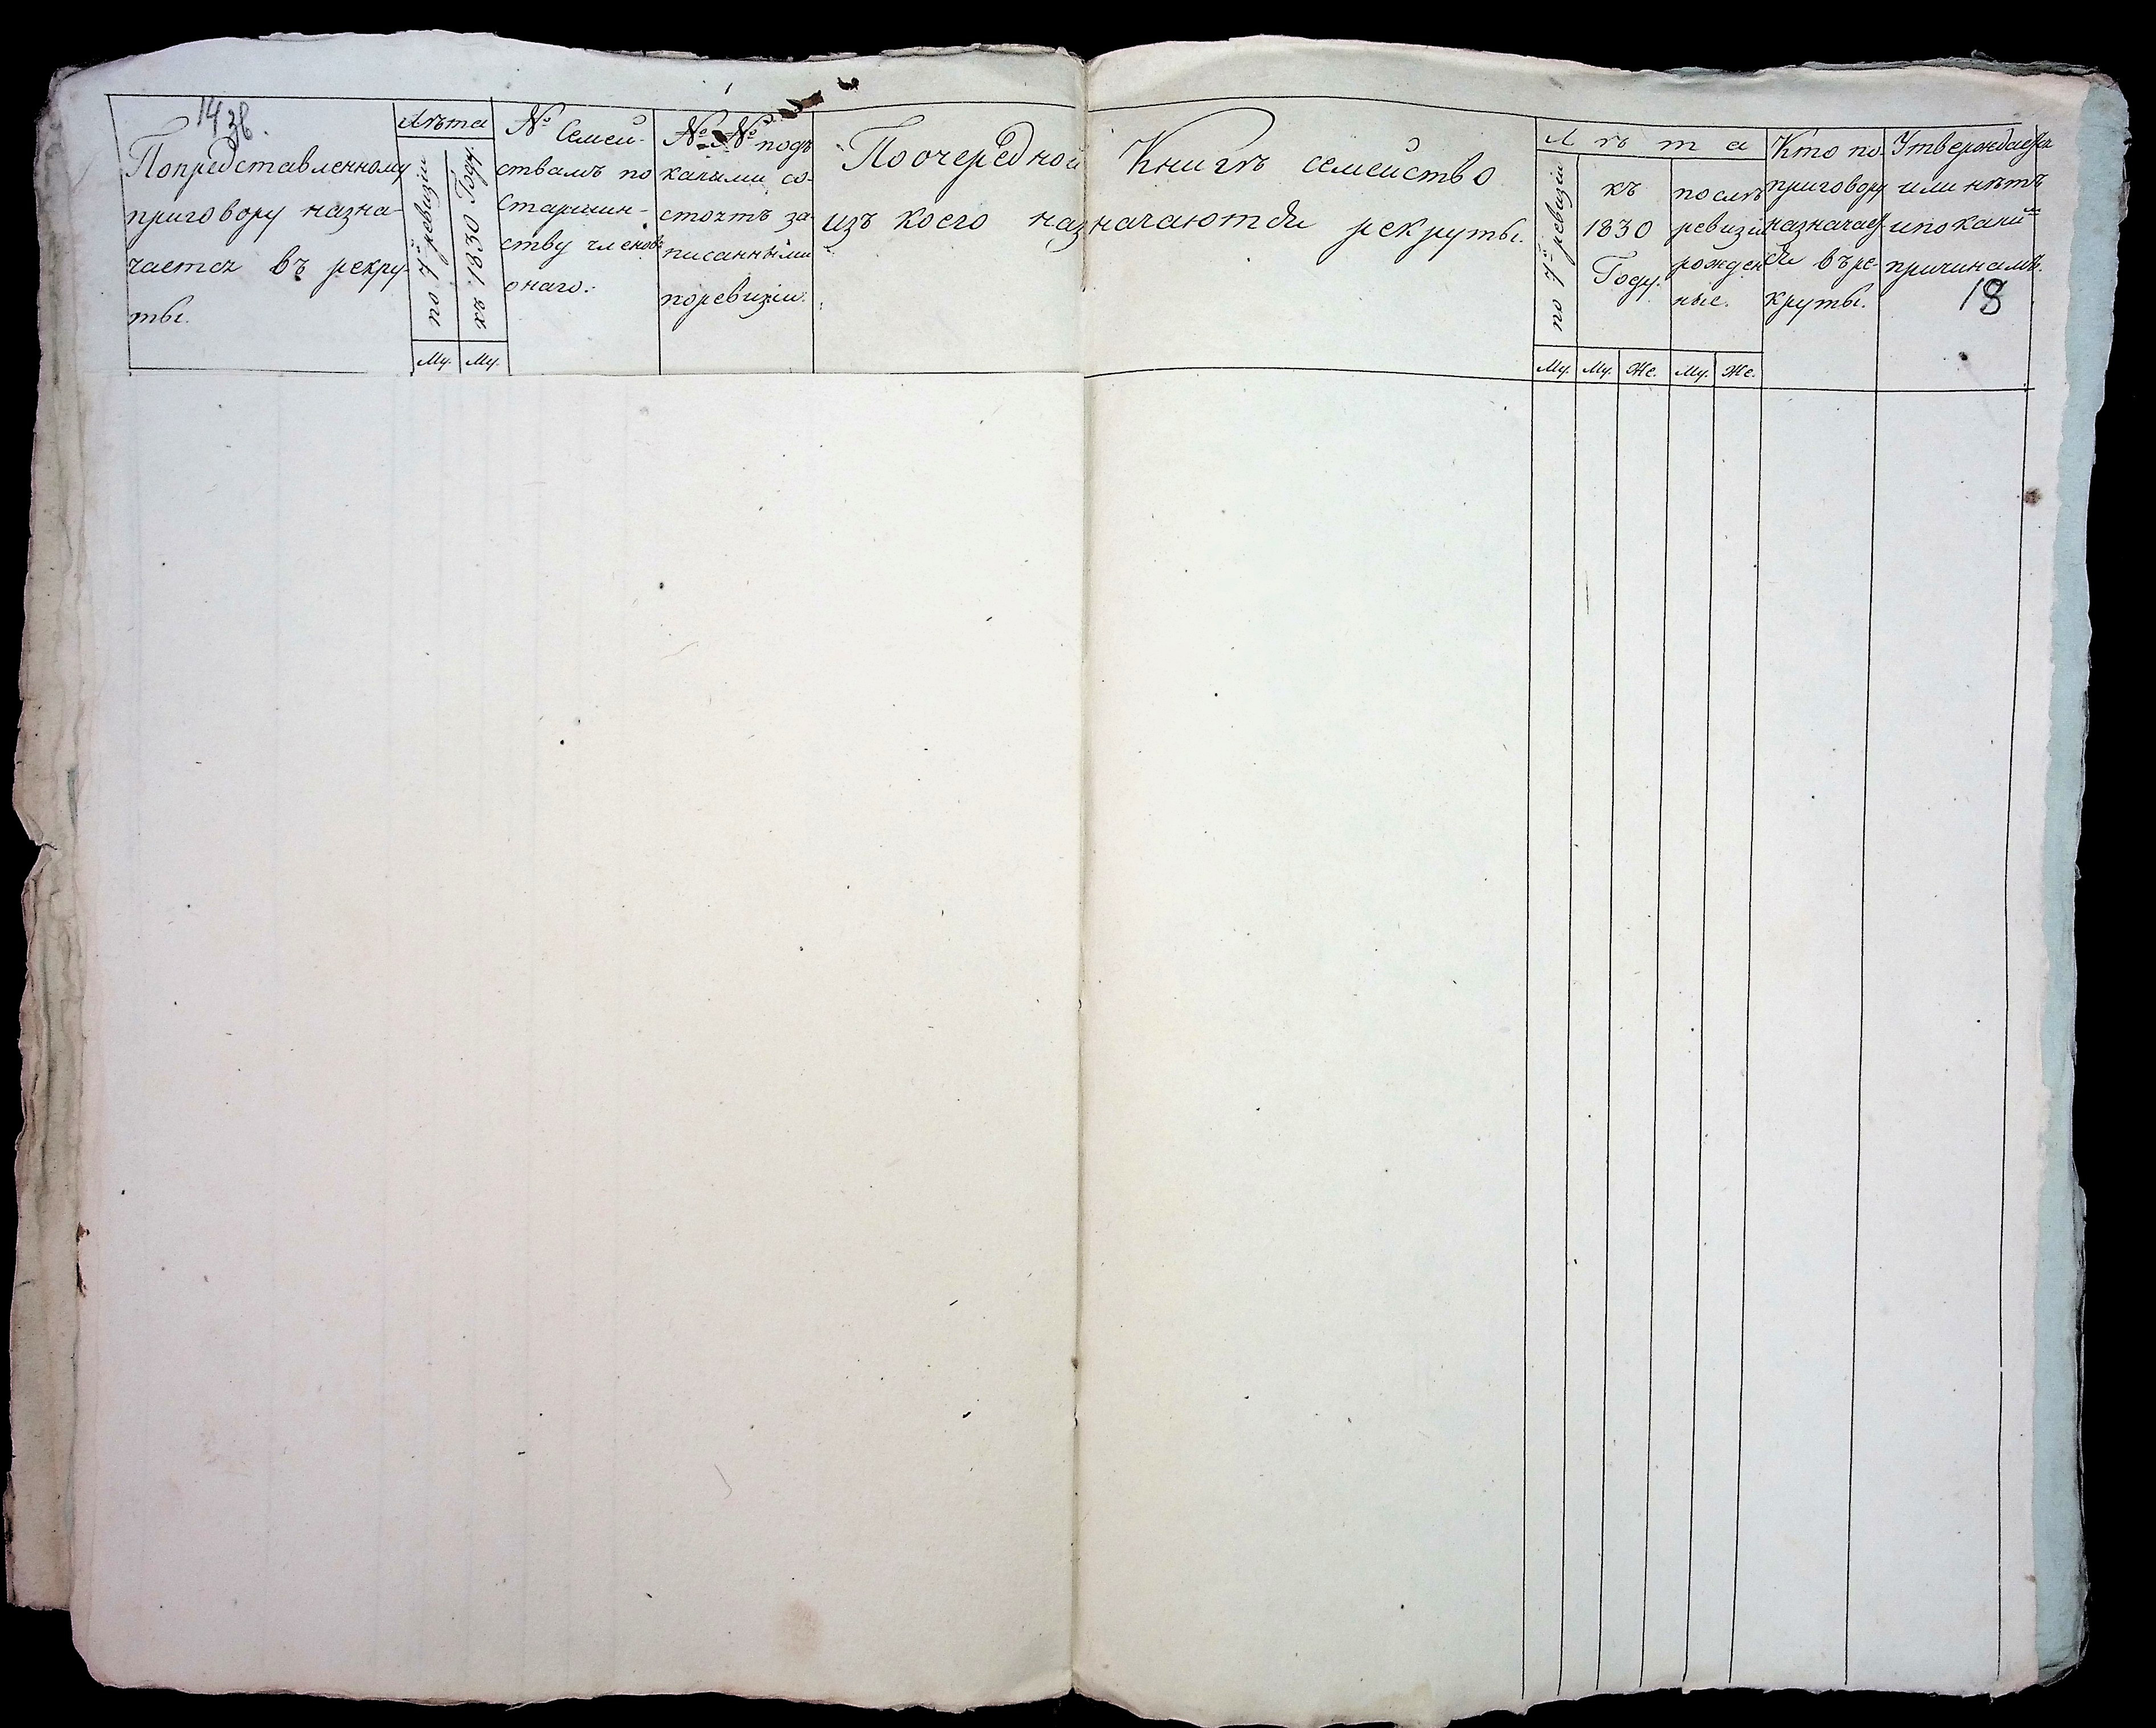 14 зв.
Попредставленному
приговору назна-
чается въ рекру-
ты.
Лѣта
по 7й ревизіи
къ 1830 Году.
Му. Му.
№ Семей-
ствамъ по
старшин-
ству членовъ
онаго:
№ № подъ
какими со-
стоятъ за
писанными
поревизіи.
По очередной Книгѣ семейство
изъ коего назначаются рекруты.
Л ѣ т а
по 7й ревизіи
къ
1830
Году.
послѣ
ревизіи
рожден
ные.
Му. Му. Же. Му. Же.
Кто по-
приговору
назначает
ся въ ре-
круты.
Утверждается
или нѣтъ
ипокаки
причинамъ.
18